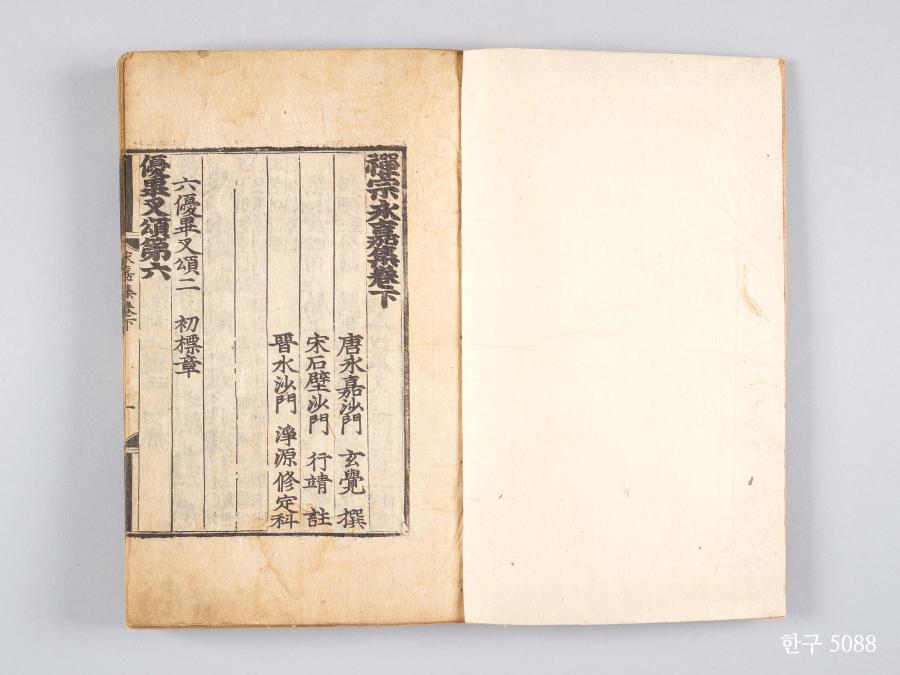 禪宗永嘉集卷下
唐永嘉沙門 玄覺 撰
宋石壁沙門 行靖 註
晉水沙門 淨源 修定科
六優畢叉頌二 初標章
優畢叉頌第六
永嘉集卷下
一
한구 5088